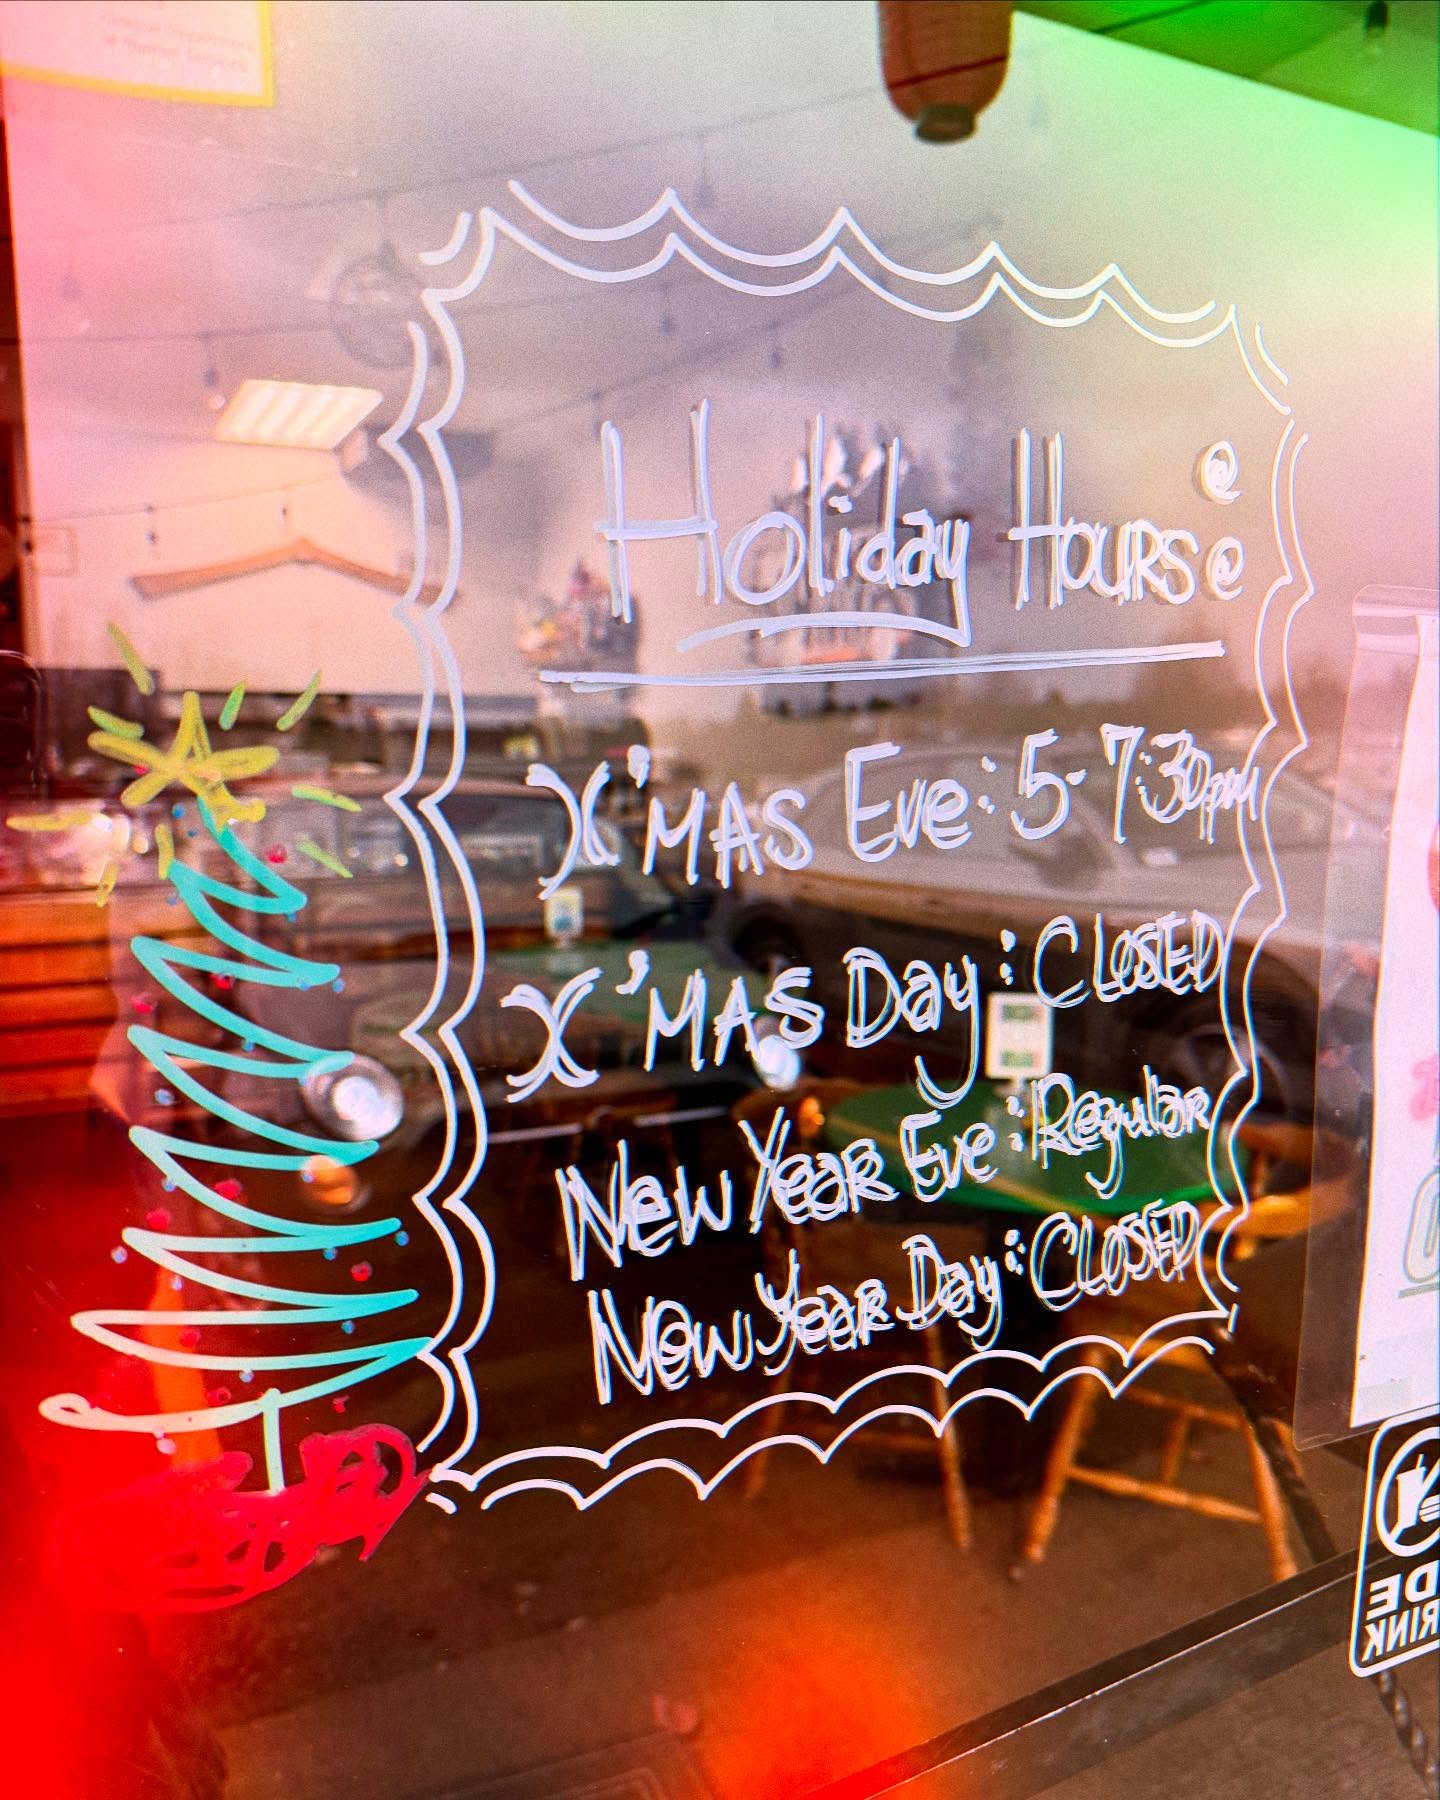 Holiday Hours:
X'MAS Eve: 5-7:30pm
X'MAS Day: CLOSED
New Year Eve: Regular
New Year Day: CLOSED